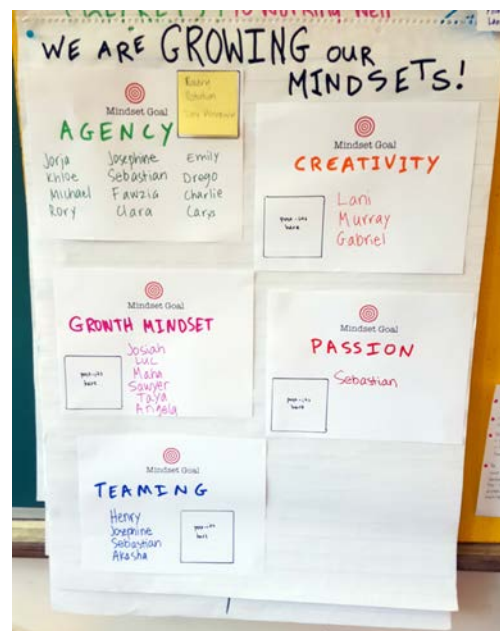 to Working Well
WE ARE GROWING OUR
MINDSETS!
Mindset Goal
AGENCY
Jorja Josephine Emily
Khloe Sebastian Drego
Michael Fawzia Charlie
Rory Clara Carys
Mindset Goal
CREATIVITY
post-its
here
Lani
Murray
Gabriel
Mindset Goal
GROWTH MINDSET
post-its
here
Josiah
Luc
Maha
Sawyer
Taya
Angela
Mindset Goal
PASSION
post-its
here
Sebastian
Mindset Goal
TEAMING
Henry
Josephine
Sebastian
Akasha
post-its
here